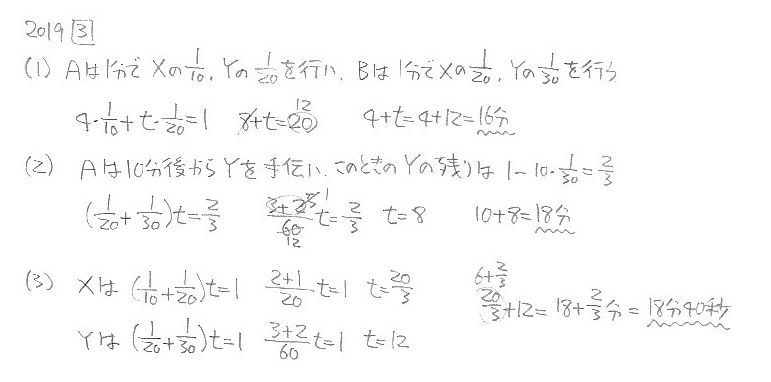 2019 3
(1) Aは1分でXの1/10, Yの1/20を行い, Bは1分でXの1/20, Yの1/30を行う
4・1/10+t・1/20=1 8+t=20 12 4+t=4+12=16分
(2) Aは10分後からYを手伝い, このときのYの残りは 1-10・1/30=2/3
(1/20+1/30)t=2/3 (3+2)/60 t=2/3 5 1 12 t=8 10+8=18分
(3) Xは (1/10+1/20)t=1 (2+1)/20 t=1 t=20/3 6+2/3 20/3+12=18+2/3分=18分40秒
Yは (1/20+1/30)t=1 (3+2)/60 t=1 t=12